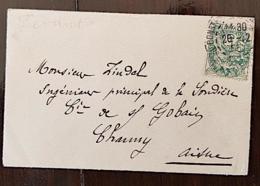 Monsieur Zindel
Ingénieur principal de la Soudière
Cie de St Gobain
Chauny
Aisne